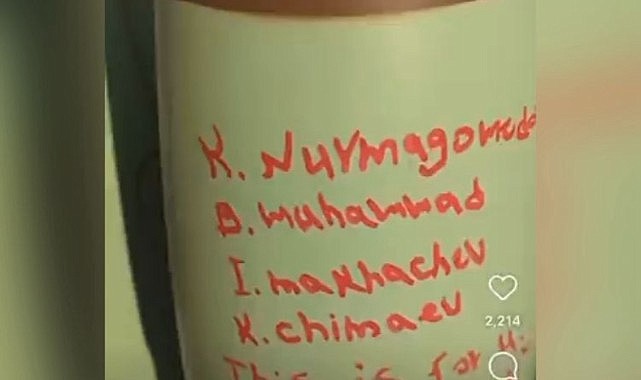 K. Nurmagomed
B. muhammad
I. makhachev
K. chimaev
2,214
This is for